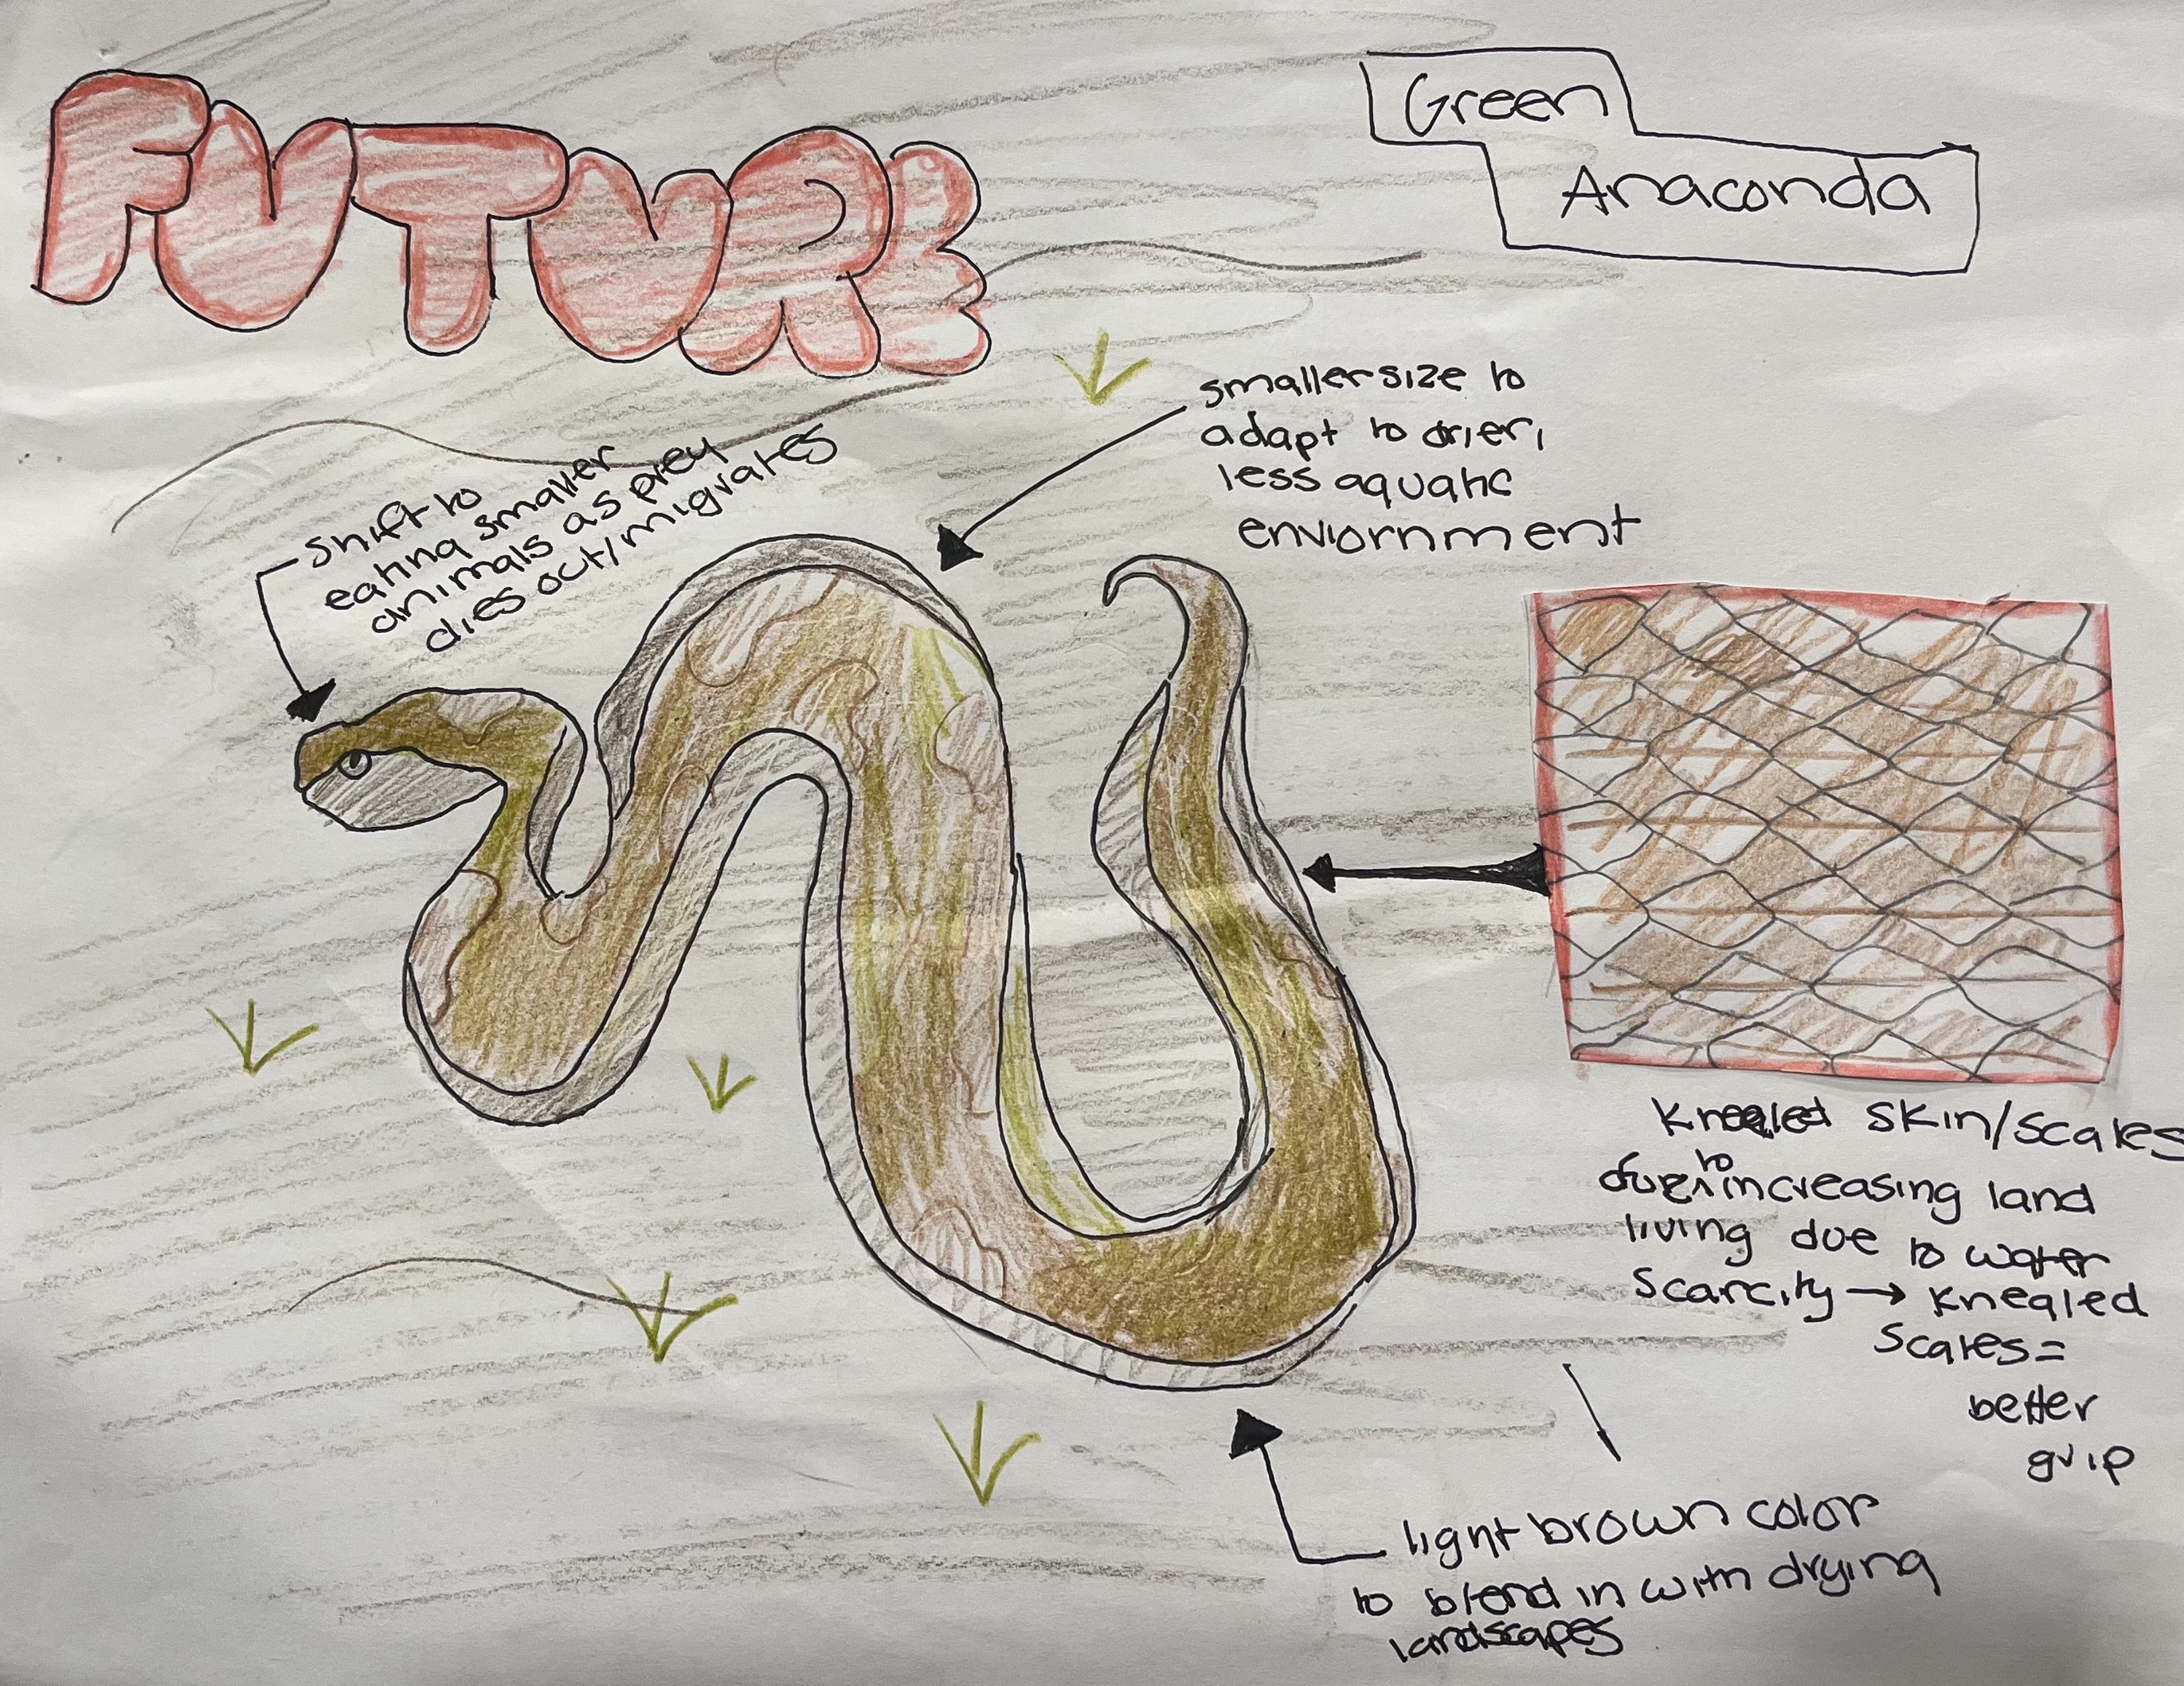 FUTURE
Green
Anaconda
smaller size to
adapt to drier,
less aquatic
enviornment
shift to
eating smaller
animals as prey
dies out/migrates
knealed skin/scales
due to increasing land
living due to water
scarcity → knealed
scales =
better
grip
light brown color
to blend in with drying
landscapes